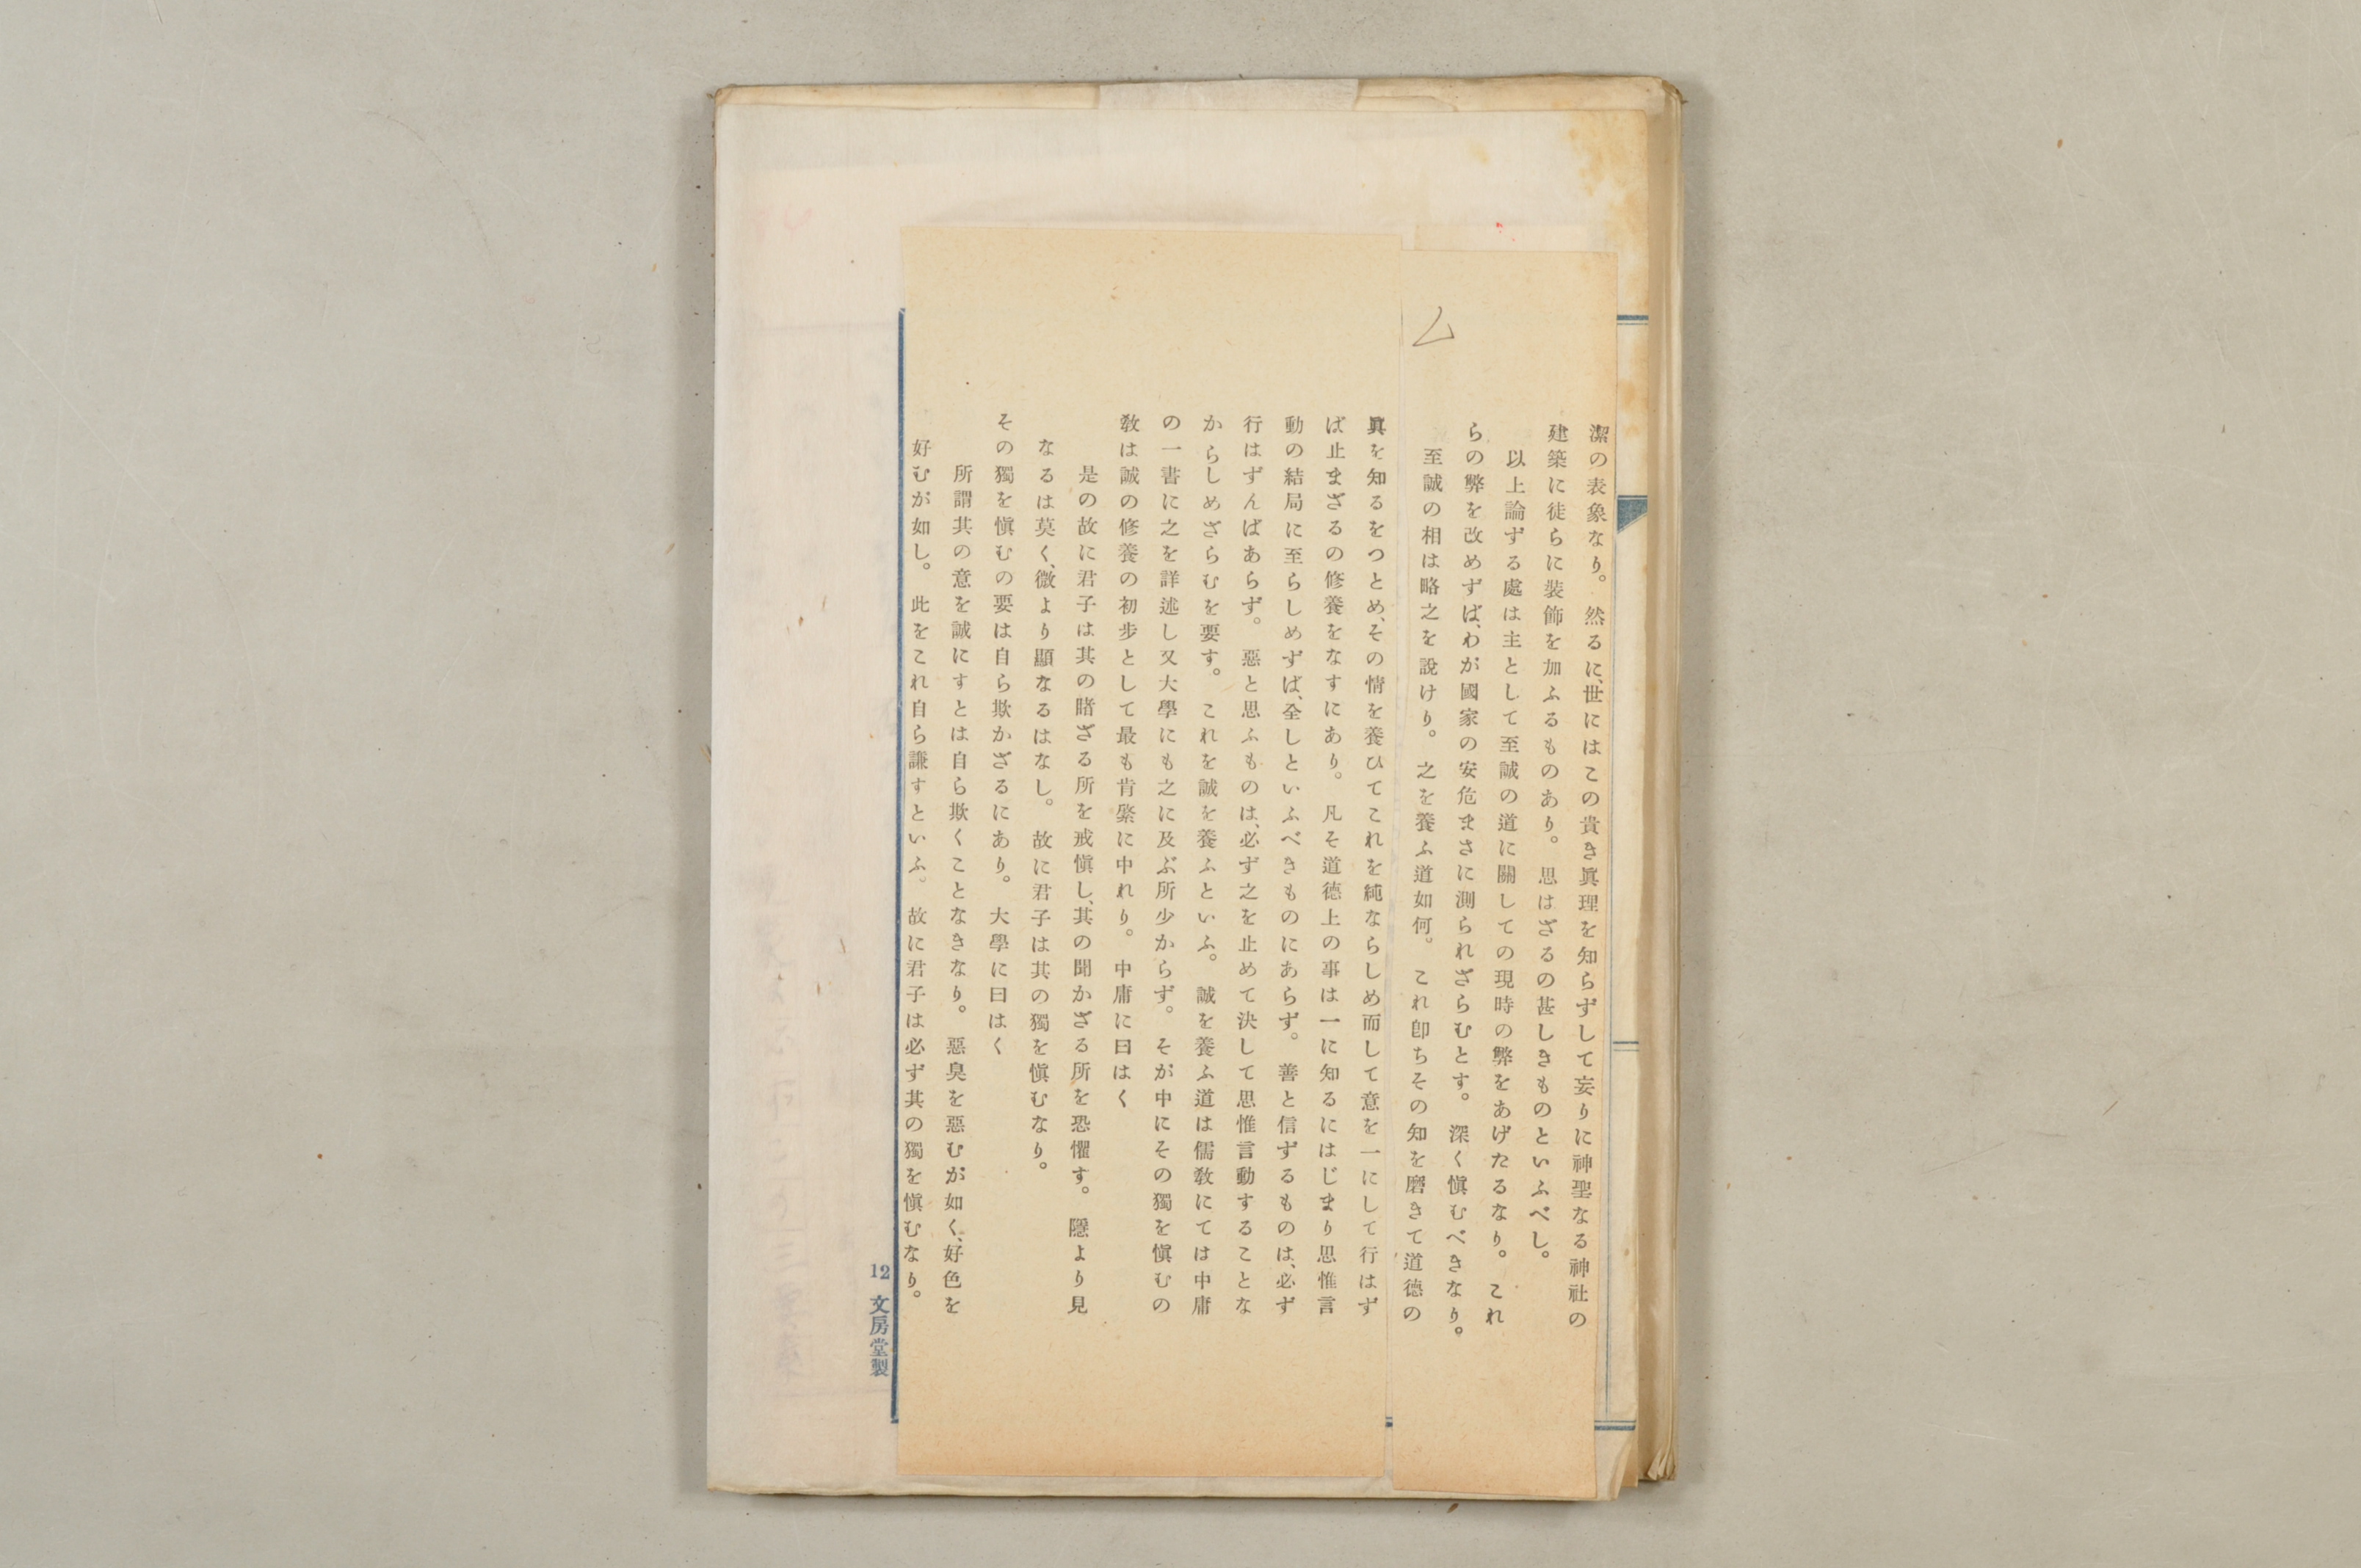 ム
潔の表象なり。然るに、世にはこの貴き眞理を知らずして妄りに神聖なる神社の
建築に徒らに装飾を加ふるものあり。思はざるの甚しきものといふべし。
以上論ずる處は主として至誠の道に關しての現時の弊をあげたるなり。これ
らの弊を改めずば、わが國家の安危まさに測られざらむとす。深く愼むべきなり。
至誠の相は略之を說けり。之を養ふ道如何。これ卽ちその知を磨きて道德の
眞を知るをつとめ、その情を養ひてこれを純ならしめ而して意を一にして行はず
ば止まざるの修養をなすにあり。凡そ道德上の事は一に知るにはじまり思惟言
動の結局に至らしめずば、全しといふべきものにあらず。善と信ずるものは、必ず
行はずんばあらず。惡と思ふものは、必ず之を止めて決して思惟言動することな
からしめざらむを要す。これを誠を養ふといふ。誠を養ふ道は儒敎にては中庸
の一書に之を詳述し又大學にも之に及ぶ所少からず。そが中にその獨を愼むの
敎は誠の修養の初步として最も肯綮に中れり。中庸に曰はく
是の故に君子は其の睹ざる所を戒愼し、其の聞かざる所を恐懼す。隱より見
なるは莫く、微より顯なるはなし。故に君子は其の獨を愼むなり。
その獨を愼むの要は自ら欺かざるにあり。大學に曰はく
所謂其の意を誠にすとは自ら欺くことなきなり。惡臭を惡むが如く、好色を
好むが如し。此をこれ自ら謙すといふ。故に君子は必ず其の獨を愼むなり。
12 文房堂製